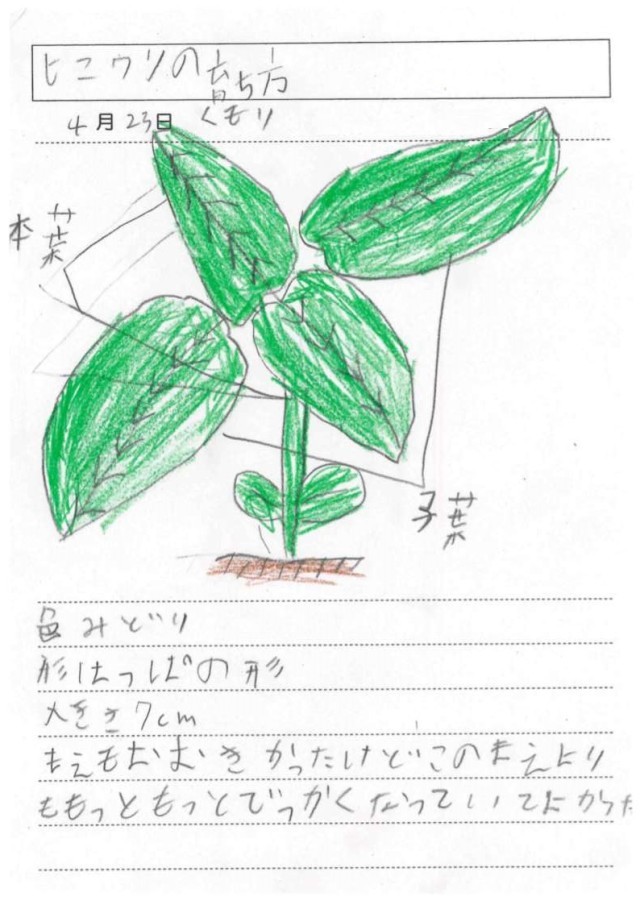 ヒニウリの育ち方
4月23日 くもり
本葉
子葉
色みどり
形はっぱの形
大きさ7cm
まえもおおきかったけどこのまえより
ももっともっとでっかくなっていてよかった